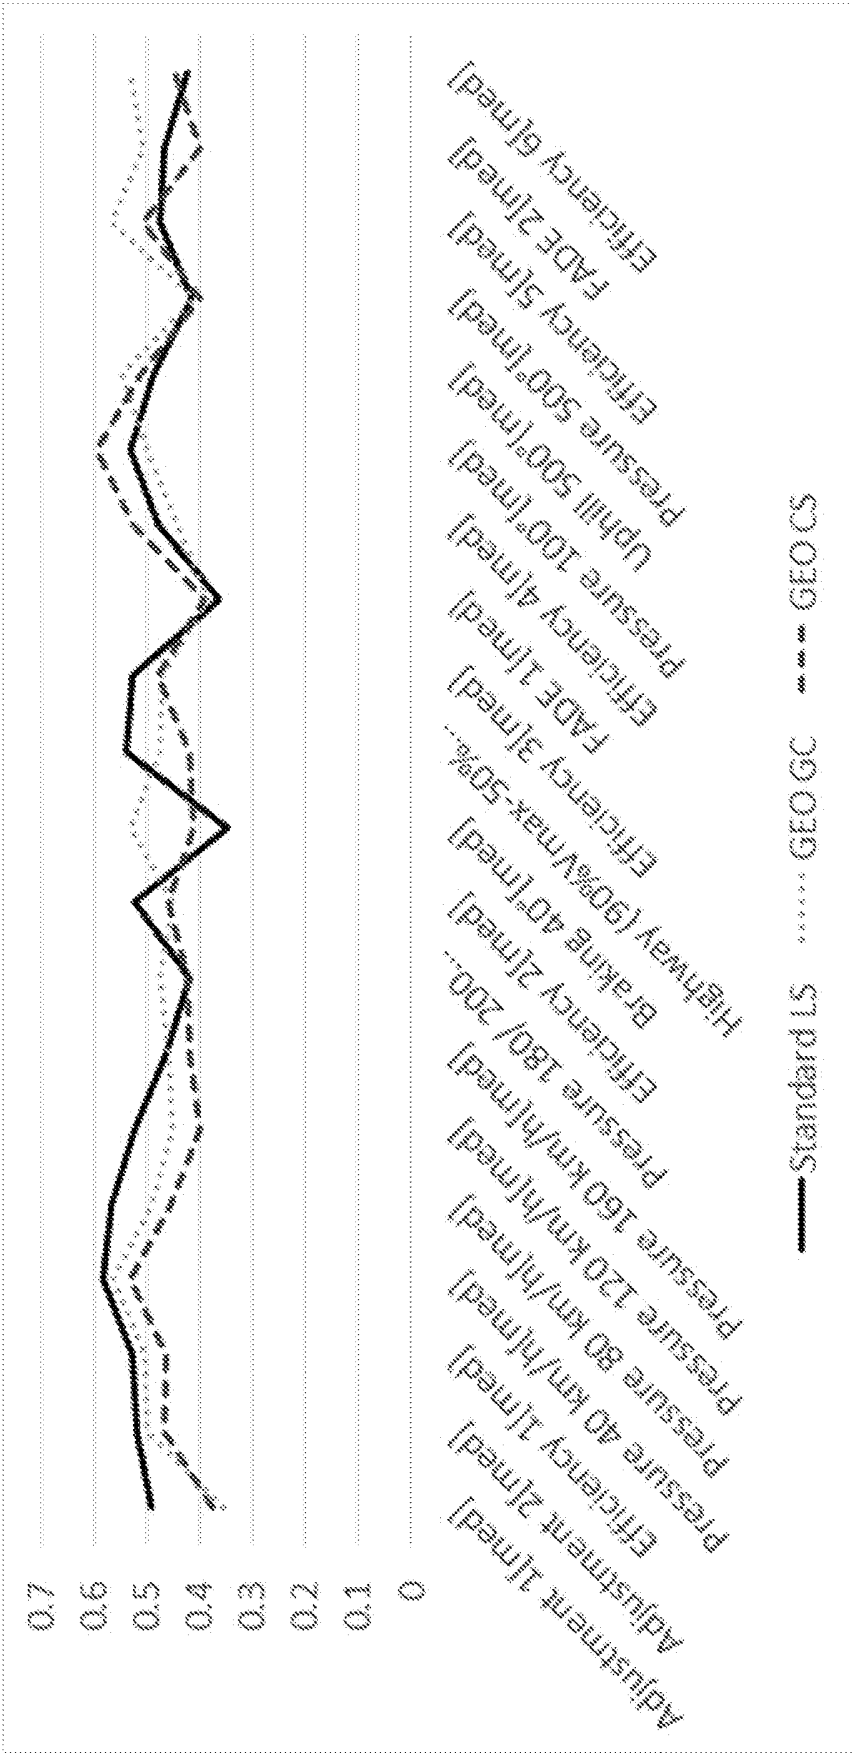 0.7
0.6
0.5
0.4
0.3
0.2
0.1
0
Adjustment 1[med]
Adjustment 2[med]
Efficiency 1[med]
Pressure 40 km/h[med]
Pressure 80 km/h[med]
Pressure 120 km/h[med]
Pressure 160 km/h[med]
Pressure 180/ 200...
Efficiency 2[med]
Braking 40°[med]
Highway (90%Vmax-50%...
Efficiency 3[med]
FADE 1[med]
Efficiency 4[med]
Pressure 100°[med]
Uphill 500°[med]
Pressure 500°[med]
Efficiency 5[med]
FADE 2[med]
Efficiency 6[med]
Standard LS
GEO GC
GEO CS